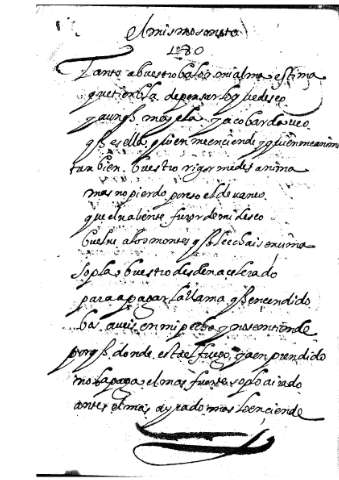 El mismo soneto
180
Tanto a buestro balor mi alma estima
que tienbla de pensar lo q̃ deseo
y aunq̃ mas ela y acobarda veo
q̃ es ella quien me enciende y quien me anima
tanbien buestro rigor me desanima
mas no pierdo por eso el devaneo
que el baliente furor de mi deseo
buelve a los montes q̃ le echais en cima
sopla buestro desden acelerado
para apagar la llama q̃ encendido
bos aveis en mi pecho y no se entiende
porq̃ donde esta el fuego ya enprendido
no lo apaga el mas fuerte soplo airado
antes el mas ayrado mas lo enciende